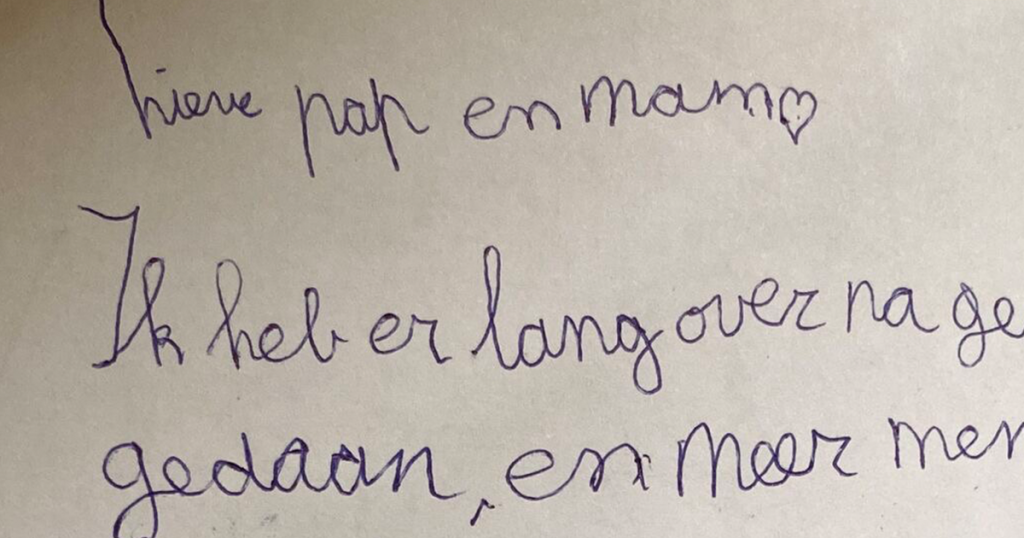 lieve pap en mam♡
Ik heb er lang over na ge
gedaan, en meer men